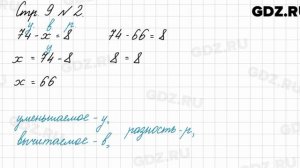 GDZ.RU
Стр. 9 № 2.
у в р
74 - х = 8
74 - 66 = 8
у
х = 74 - 8
8 = 8
х = 66
уменьшаемое - у,
вычитаемое - в,
разность - р,